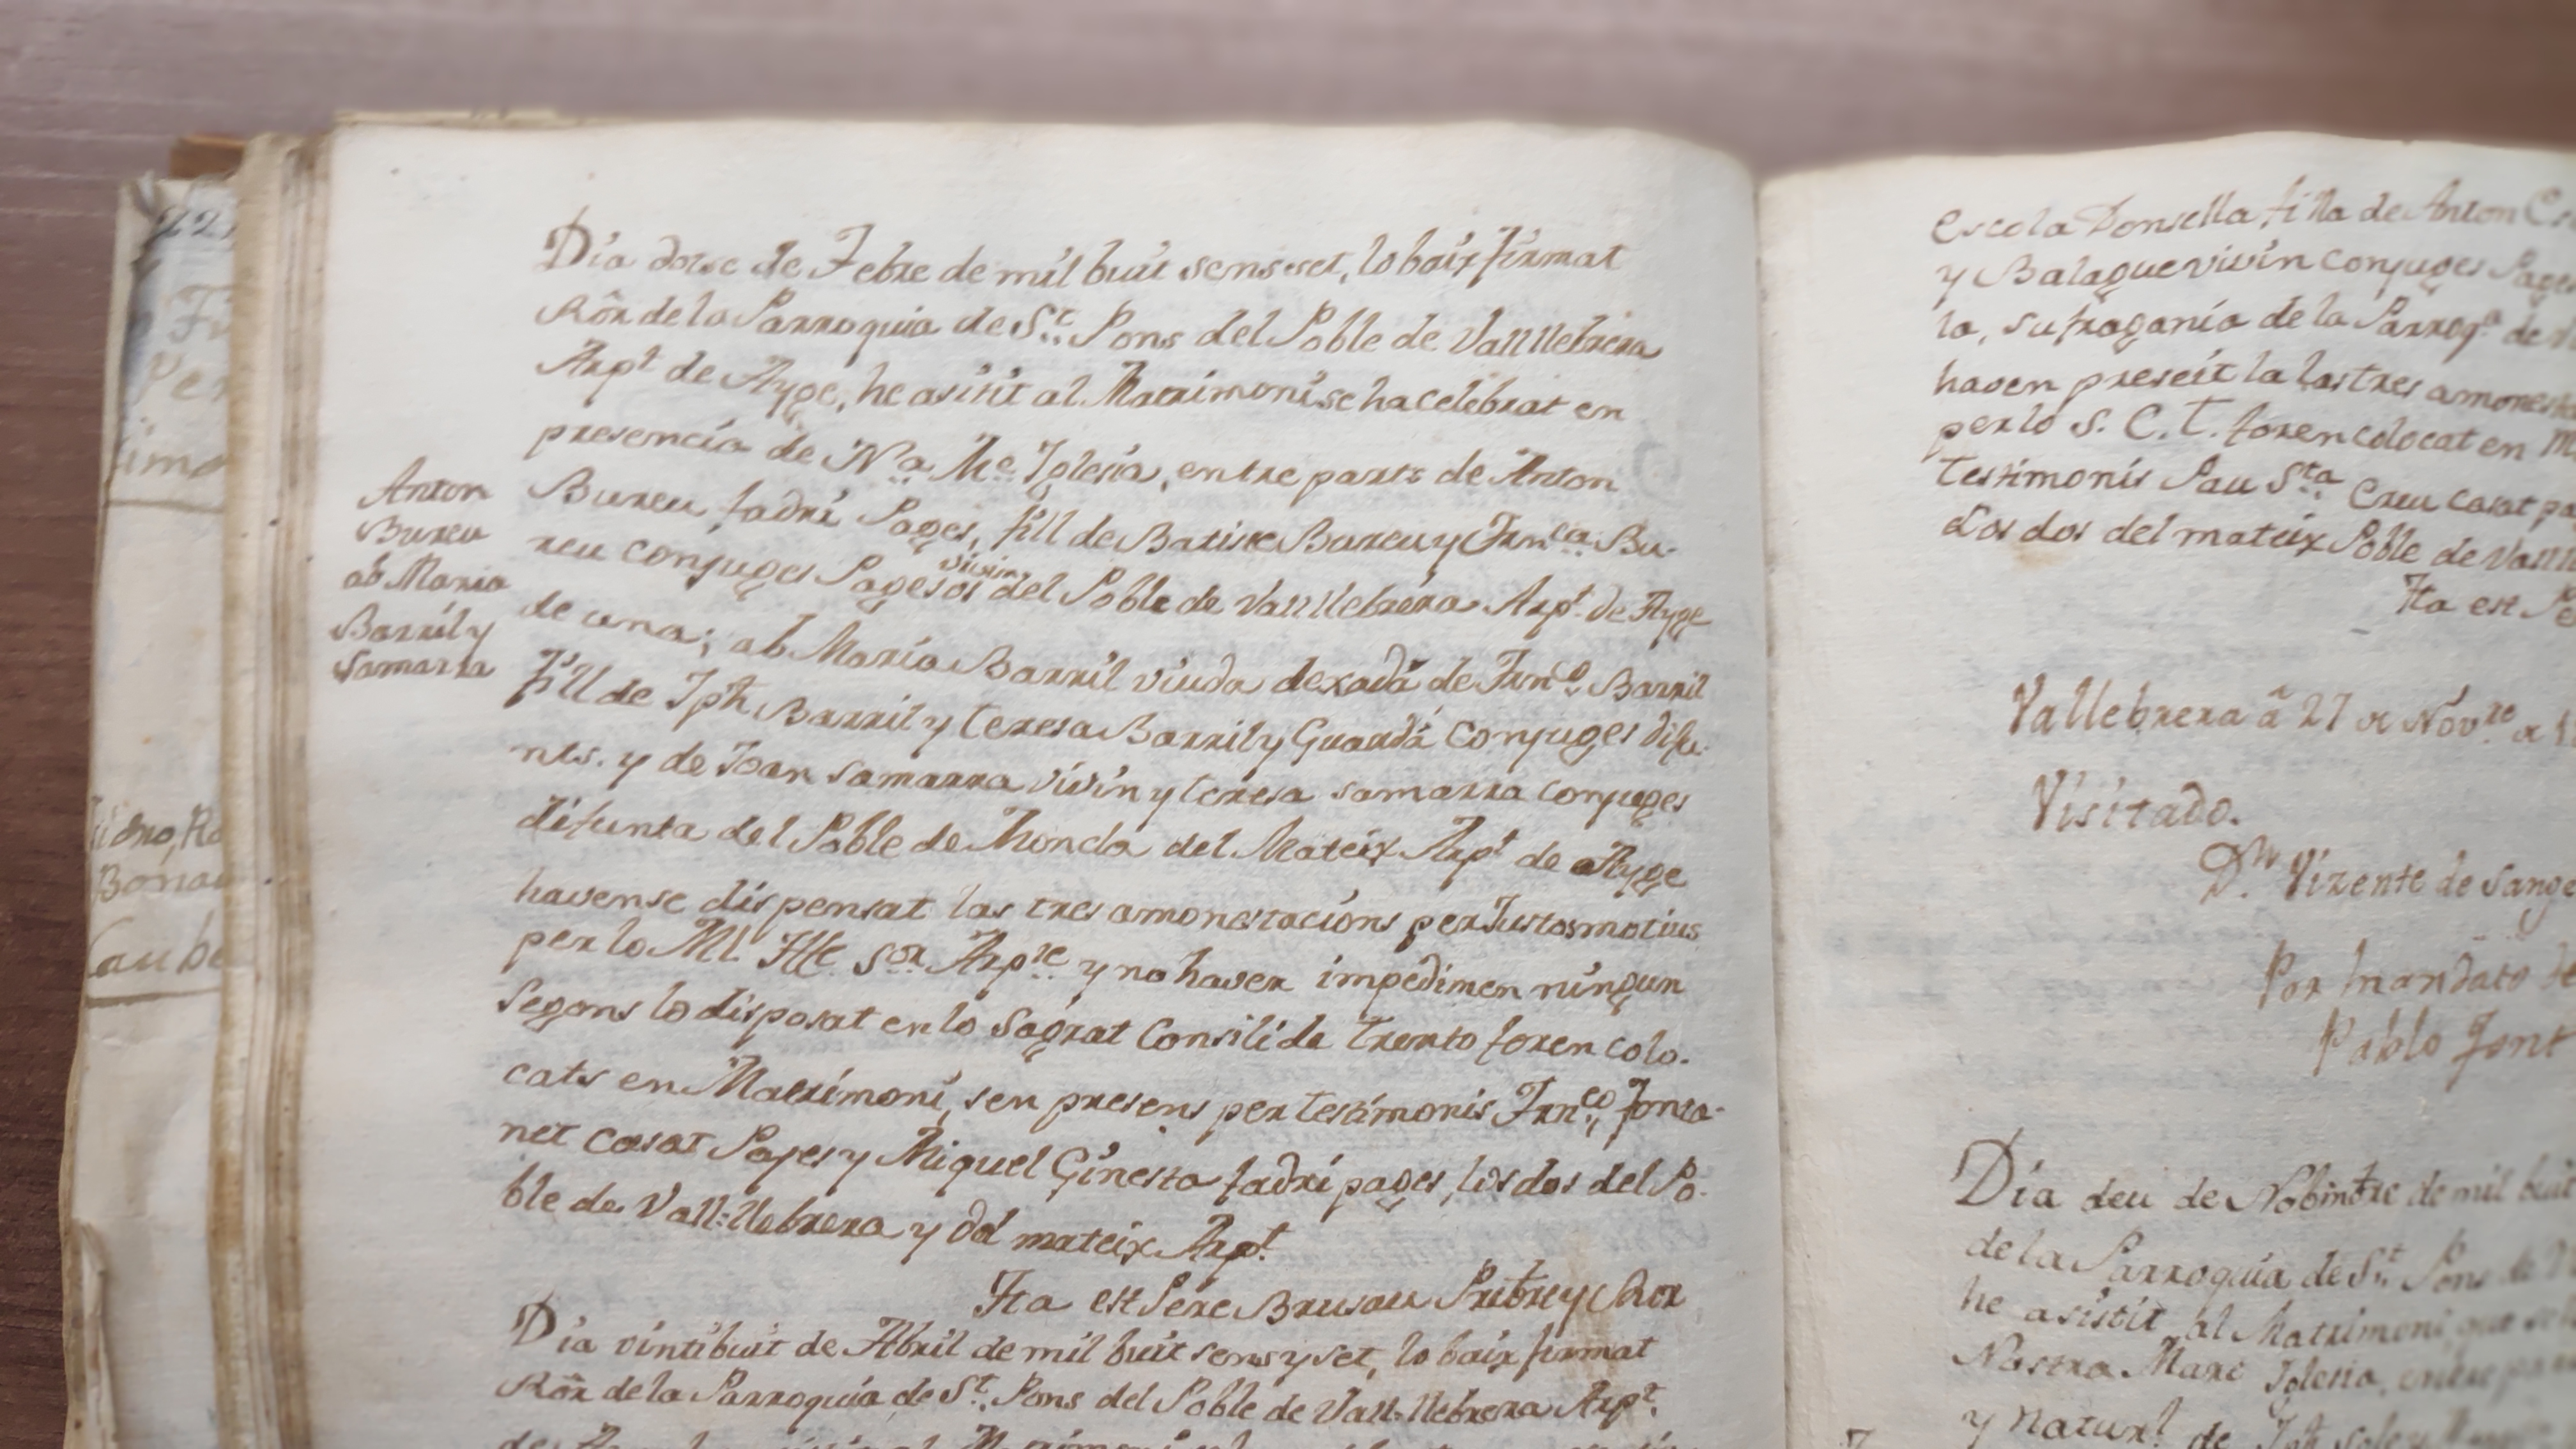 22
Anton
Bureu
ab Maria
Barril y
Samarra
Dia dotse de Febre de mil buit sens set, lo baix firmat
Rôr de la Parroquia de St. Pons del Poble de Vall llebrera
Arpt de Ager, he asistit al Matrimoni se ha celebrat en
presencia de Na. Me. Iglesia, entre parts de Anton
Bureu fadri Pages, fill de Batiste Bureu y Franca. Bu-
reu conjuges Pagesos vivin del Poble de Vall llebrera Arpt. de Ager
de una; ab Maria Barril viuda dexada de Franco. Barril
fill de Jph Barril y Teresa Barril y Guardá conjuges difu-
nts. y de Joan Samarra vivin y teresa samarra conjuges
difunta del Poble de Moncla del Mateix Arpt de Ager
havense dispensat las tres amonestacions per Justos motius
per lo Ml. Ille. Sor. Arpre. y no haver impedimen ningun
Segons lo disposat en lo Sagrat Consili de Trento foren colo-
cats en Matrimoni, sen presens per testimonis Franco. Fonta-
net casat Pages y Miquel Ginesta fadri pages, los dos del Po-
ble de Vall-llebrera y del mateix Arpt.
Ita est Pere Brusau Prebre y Ror
Dia vintibuit de Abril de mil buit sens y set, lo baix firmat
Rôr de la Parroquia de St. Pons del Poble de Vall-llebrera Arpt.
Escola Donsella, filla de Anton
y Balague vivin conjuges
la, sufragania de la Parroqa. de
haven preseit la las tres
per lo S. C. T. foren colocat en
testimonis Pau Sta Creu casat
Los dos del mateix Poble de
Ita est
Vallebrera â 27 de Novre. de
Visitado.
Dn. Vizente de
Por mandato
Pablo Font
Dia deu de Nobimbre de mil buit
de la Parroquia de St. Pons de
he asistit al Matrimoni, que
Nostra Mare Iglesia, entre
y Natural de Jph